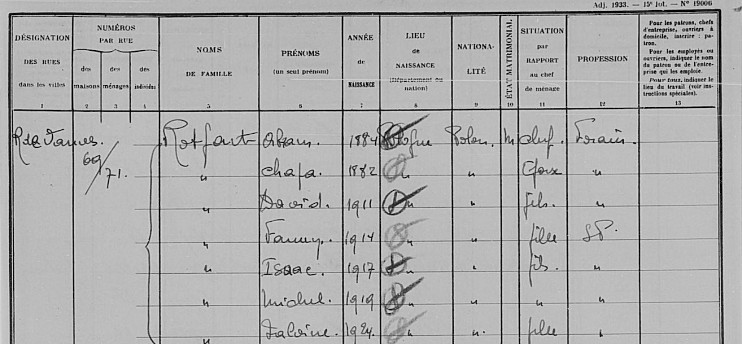 Adj. 1933. — 15e lot. — N° 19006
DÉSIGNATION DES RUES dans les villes 1
NUMÉROS PAR RUE
des maisons 2
des ménages 3
des individus 4
NOMS DE FAMILLE 5
PRÉNOMS (un seul prénom) 6
ANNÉE de NAISSANCE 7
LIEU DE NAISSANCE (Département ou nation) 8
NATIONALITÉ 9
ÉTAT MATRIMONIAL 10
SITUATION par RAPPORT au chef de ménage 11
PROFESSION 12
Pour les patrons, chefs d'entreprise, ouvriers à domicile, inscrire : patron.
Pour les employés ou ouvriers, indiquer le nom du patron ou de l'entreprise qui les emploie.
Pour tous, indiquer le lieu du travail (voir instructions spéciales). 13
R de Vannes 69/71. Abram. 1884 Pologne Polon. m chef
" 1882 " " "
" David. 1911 " " fils. "
" Fanny. 1914 " " fille SP.
" Isaac 1917 " " fils. "
" Michel 1919 " " " "
" 1924. " " fille "